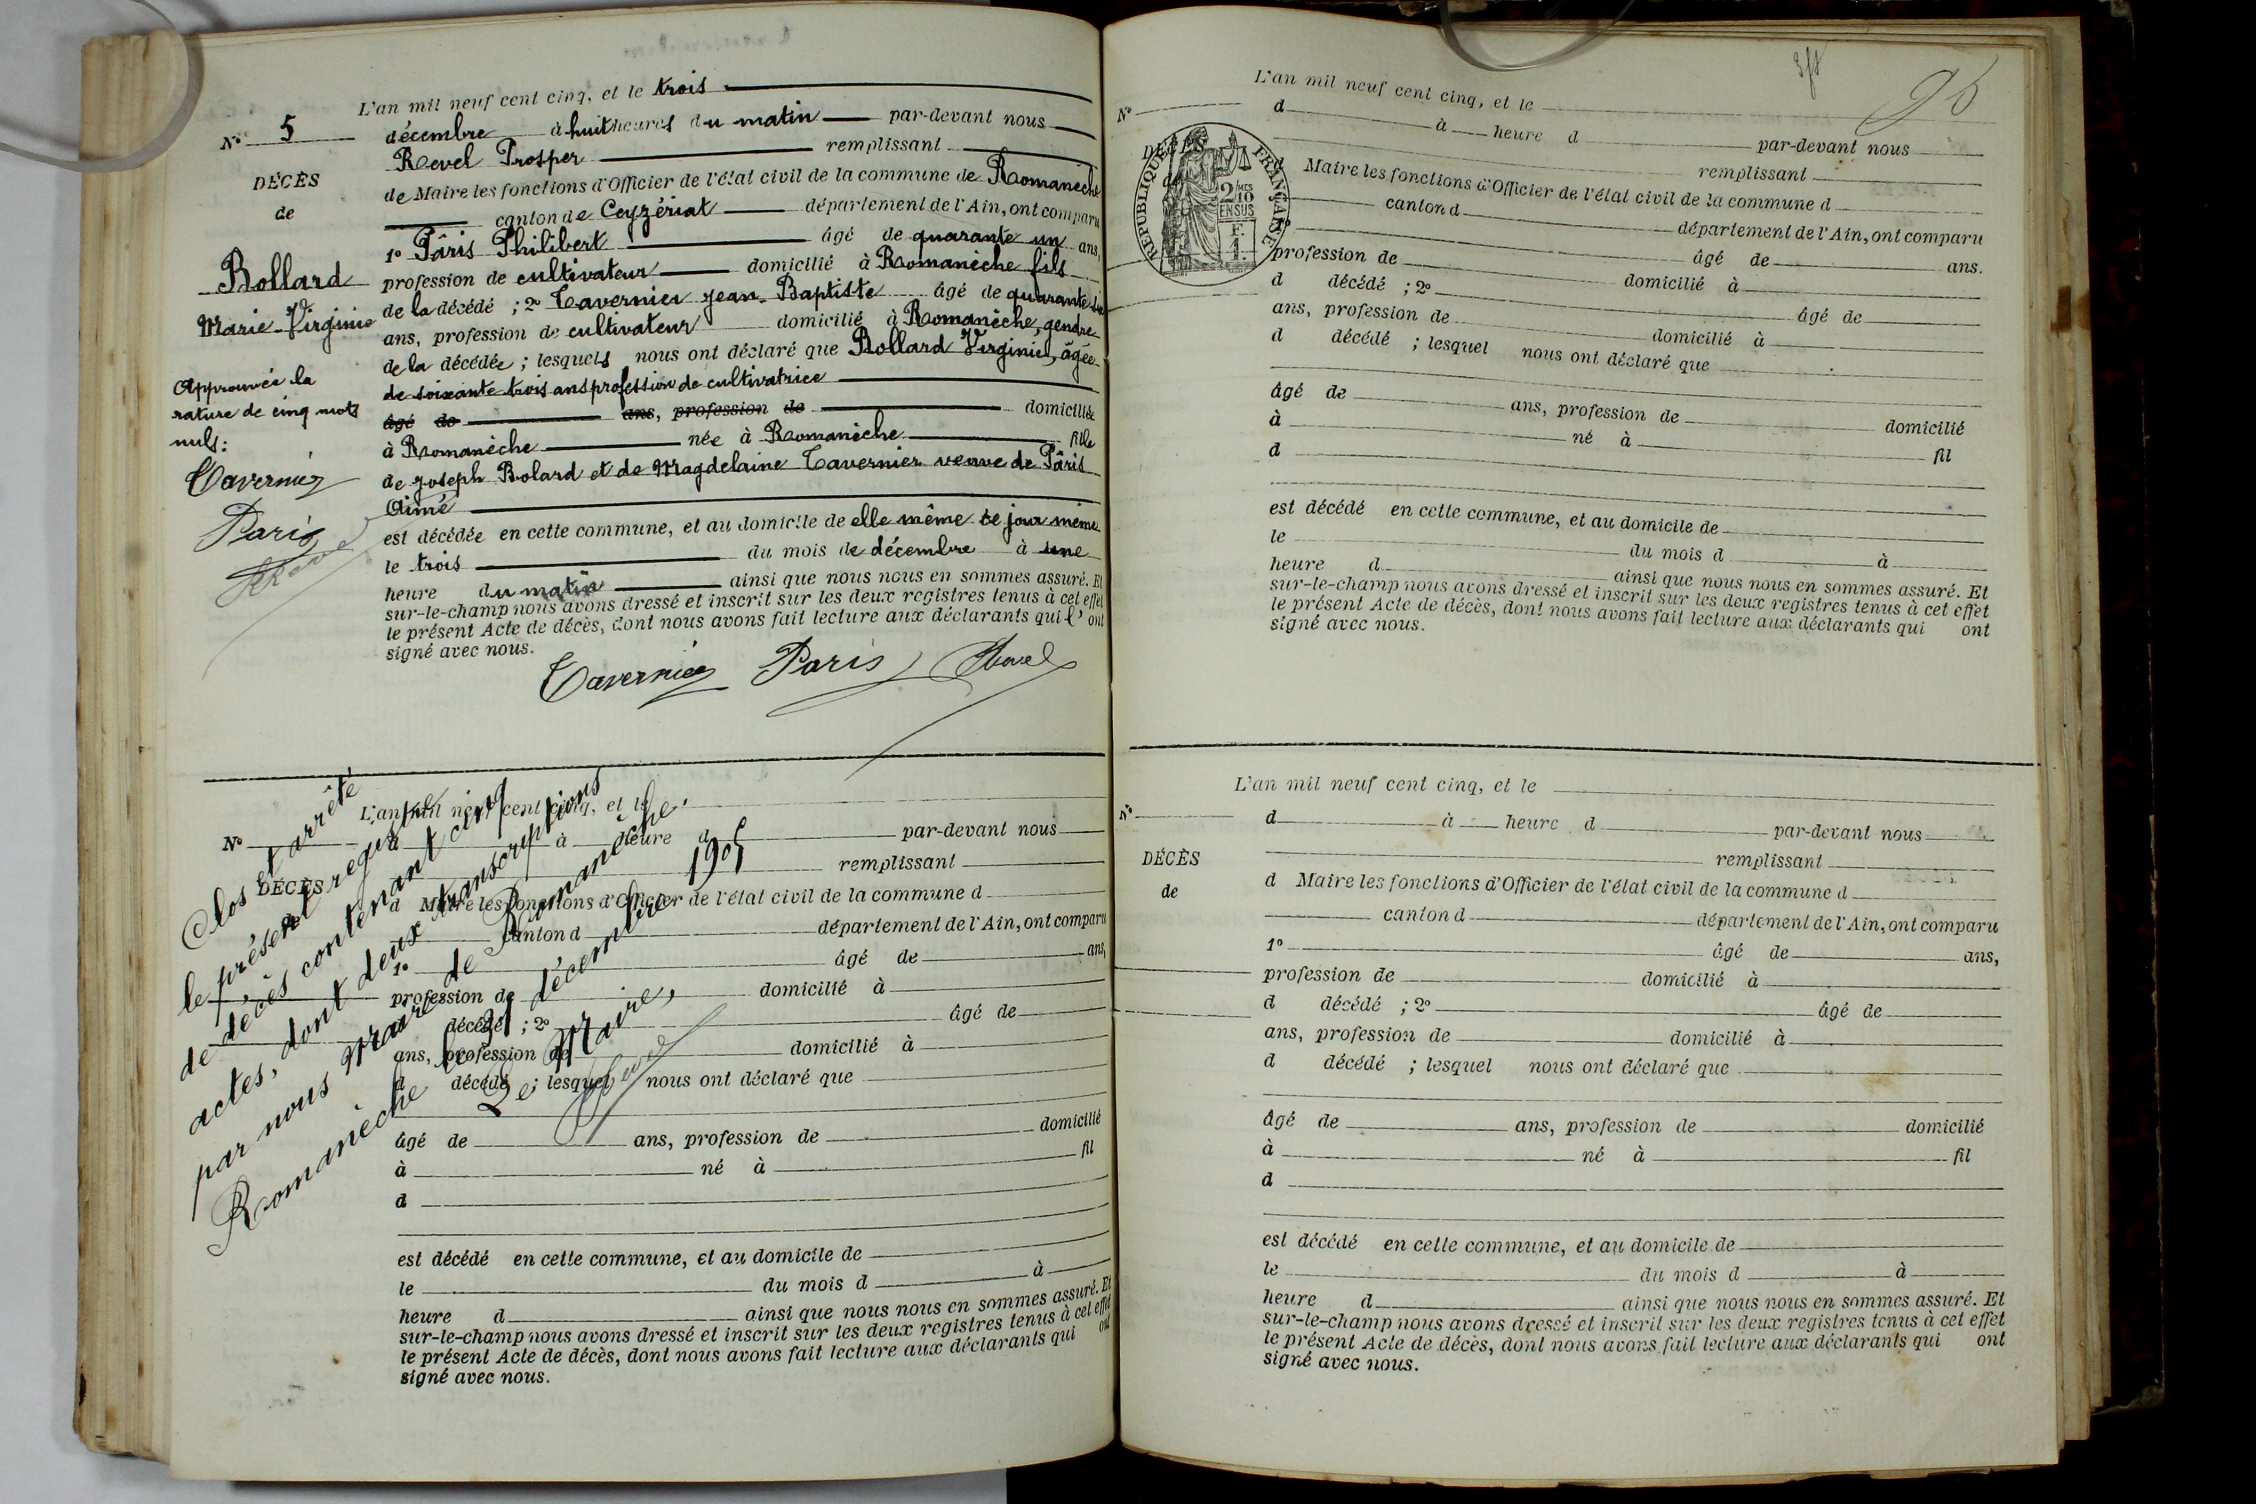 L'an mil neuf cent cinq, et le trois
N° 5
décembre à huit heures du matin par-devant nous
Revel Prosper remplissant
DÉCÈS
de Maire les fonctions d'Officier de l'état civil de la commune de Romanèche
de
canton de Ceyzériat département de l'Ain, ont comparu
1° Pâris Philibert âgé de quarante un ans,
Bollard
profession de cultivateur domicilié à Romanèche fils
Marie-Virginie
de la décédé ; 2° Tavernier Jean-Baptiste âgé de quarante
ans, profession de cultivateur domicilié à Romanèche, gendre
de la décédée ; lesquels nous ont déclaré que Bollard Virginie, âgée
Approuvée la
de soixante trois ans profession de cultivatrice
rature de cinq mots
âgé de ans, profession de domiciliée
nuls :
à Romanèche née à Romanèche fille
Tavernier
de Joseph Bolard et de Magdelaine Tavernier veuve de Pâris
Aimé
Paris
est décédée en cette commune, et au domicile de elle même ce jour même
Revel
le trois du mois de décembre à une
heure du matin ainsi que nous nous en sommes assuré. Et
sur-le-champ nous avons dressé et inscrit sur les deux registres tenus à cet effet
le présent Acte de décès, dont nous avons fait lecture aux déclarants qui l'ont
signé avec nous.
Tavernier Paris Revel
L'an mil neuf cent cinq, et le
N° d à heure d par-devant nous
remplissant
DÉCÈS
d Maire les fonctions d'Officier de l'état civil de la commune d
canton d département de l'Ain, ont comparu
1° âgé de ans,
profession de domicilié à
d décédé ; 2° âgé de
ans, profession de domicilié à
d décédé ; lesquel nous ont déclaré que
âgé de ans, profession de domicilié
à né à fil
d
est décédé en cette commune, et au domicile de
le du mois d à
heure d ainsi que nous nous en sommes assuré. Et
sur-le-champ nous avons dressé et inscrit sur les deux registres tenus à cet effet
le présent Acte de décès, dont nous avons fait lecture aux déclarants qui ont
signé avec nous.
Clos et arrêté
le présent registre
de décès contenant cinq
actes, dont deux transcriptions
par nous Maire de Romanèche.
Romanèche le 31 décembre 1905
Le Maire,
Revel
96
L'an mil neuf cent cinq, et le
N° d à heure d par-devant nous
DÉCÈS
remplissant
de
Maire les fonctions d'Officier de l'état civil de la commune d
RÉPUBLIQUE FRANÇAISE
2/10 MES
EN SUS
F.
1.
canton d département de l'Ain, ont comparu
âgé de ans.
profession de domicilié à
d décédé ; 2° âgé de
ans, profession de domicilié à
d décédé ; lesquel nous ont déclaré que
âgé de ans, profession de domicilié
à né à fil
d
est décédé en cette commune, et au domicile de
le du mois d à
heure d ainsi que nous nous en sommes assuré. Et
sur-le-champ nous avons dressé et inscrit sur les deux registres tenus à cet effet
le présent Acte de décès, dont nous avons fait lecture aux déclarants qui ont
signé avec nous.
L'an mil neuf cent cinq, et le
N° d à heure d par-devant nous
remplissant
DÉCÈS
d Maire les fonctions d'Officier de l'état civil de la commune d
de
canton d département de l'Ain, ont comparu
1° âgé de ans,
profession de domicilié à
d décédé ; 2° âgé de
ans, profession de domicilié à
d décédé ; lesquel nous ont déclaré que
âgé de ans, profession de domicilié
à né à fil
d
est décédé en cette commune, et au domicile de
le du mois d à
heure d ainsi que nous nous en sommes assuré. Et
sur-le-champ nous avons dressé et inscrit sur les deux registres tenus à cet effet
le présent Acte de décès, dont nous avons fait lecture aux déclarants qui ont
signé avec nous.